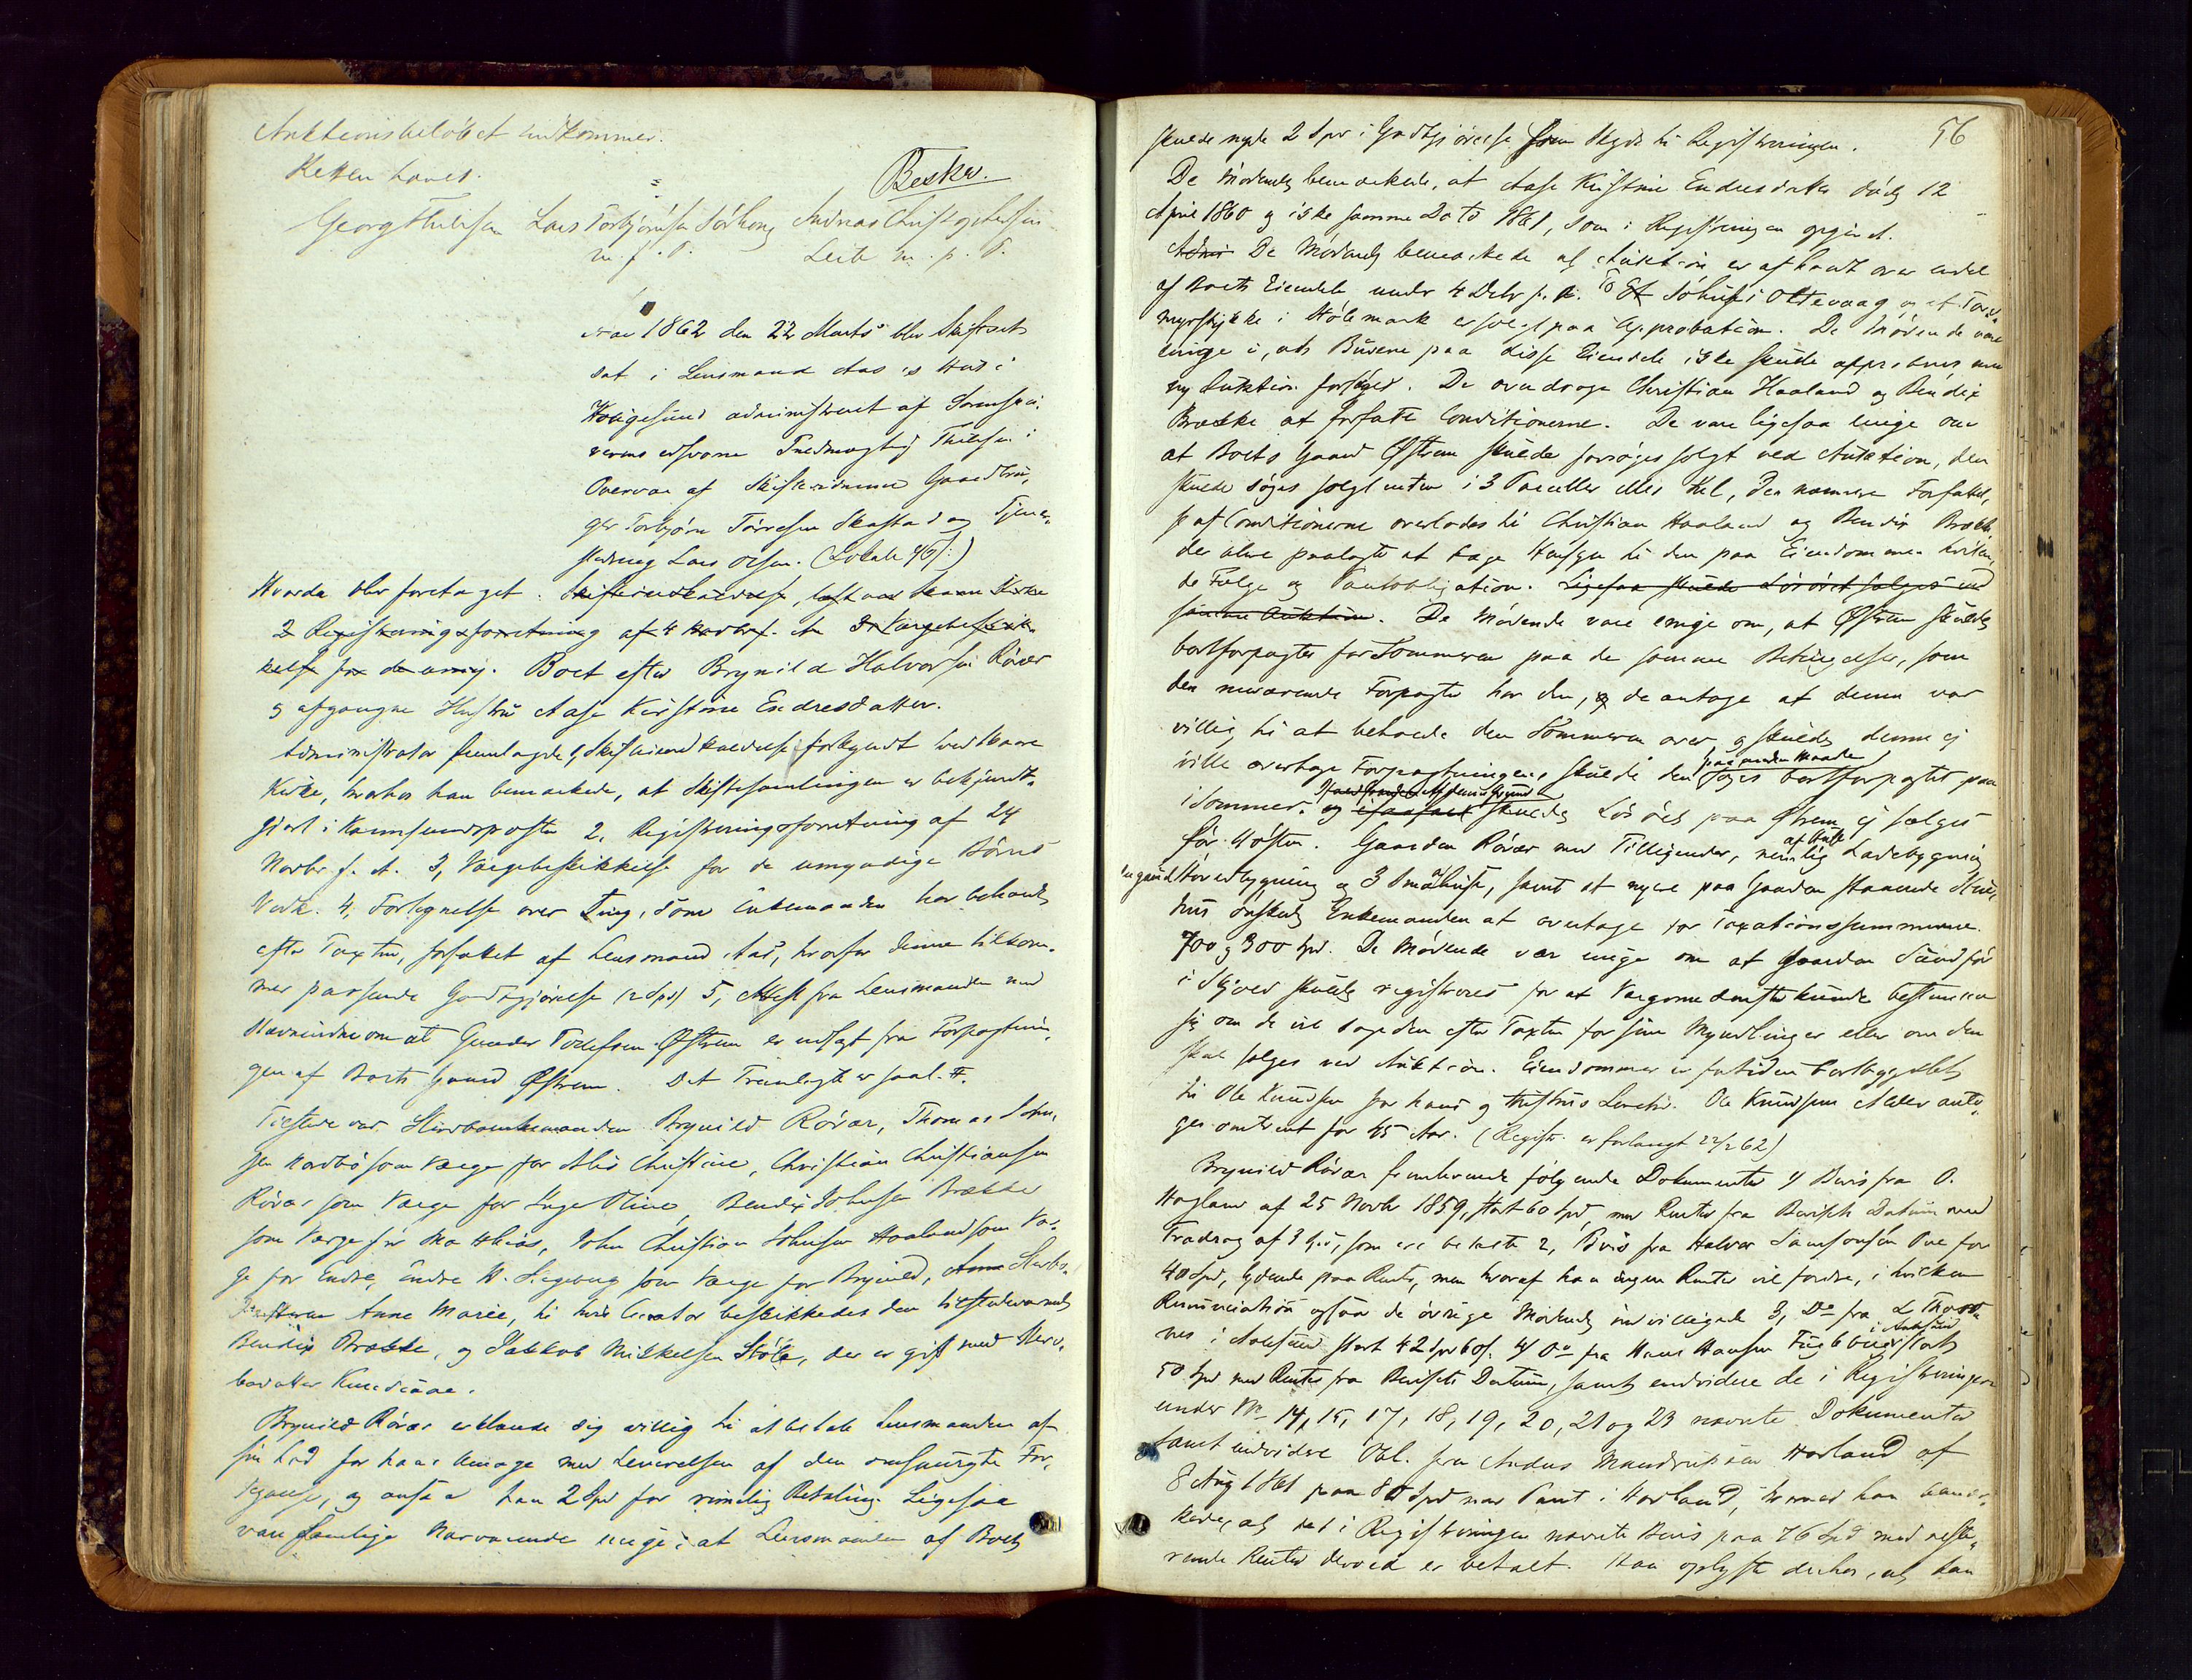 Auktionsbeløbet indkommer.
Retten hævet.
Beske.
Georg Thilesen Lars Torbjørnsen Sørhoug Andreas Christophersen
m. f. P. Leite m. p. P.
Aar 1862 den 22 Marts blev Skifteret
sat i Lensmand Aas's Hus i
Haugesund administreret af Sorenskri-
verens edsvorne Fuldmægtig Thilesen i
Overvær af Skiftevidnerne Gaardbru-
ger Torbjørn Tørresen Skastad og Tjene-
stedreng Lars Olsen. (Lokale 4/6/:)
Hvorda blev foretaget. Skifteindkaldelse, læst ved Skaare Kirke
2 Registreringsforretning af 4 Novbr f. A. 3, Værgebeskik-
kelse for de umy. Boet efter Brynild Halvorsen Røvær
og afgangne Hustru Aase Kirstine Endresdatter.
Administrator fremlagde 1, Skifteindkaldelse forkyndt ved Skaare
Kirke, hvorhos han bemærkede, at Skiftesamlingen er bekjendt-
gjort i Karmsundsposten 2, Registreringsforretning af 24
Novbr f. A. 3, Værgebeskikkelse for de umyndige Børns
Vedk. 4, Fortegnelse over Ting, som Enkemanden har beholdt
efter Taxten, forfattet af Lensmand Aas, hvorfor denne tilkom-
mer passende Godtgjørelse (2 Spd) 5, Attest fra Lensmanden med
Stævnevidne om at Gunder Tollefsen Østrem er udsagt fra Forpagtnin-
gen af Boets Gaard Østrem. Det Fremlagte er saal. #.
Tilstede var Stervboenkemanden Brynild Røvær, Thomas John-
sen Nordbø som Værge for Alis Christine, Christian Christiansen
Røvær som Værge for Inge Oline, Bendix Johnsen Brække
som Værge for Mathias, John Christian Johnsen Haaland som Vær-
ge for Endre, Endre H. Liegevug som Værge for Brynild, Anne Stervbo-
datteren Anne Marie, til hvis Curator beskikkedes den tilstedeværende
Bendix Brække, og Jakkob Mikkelsen Støle, der er gift med Sterv-
bodatter Kundiane.
Brynild Røvær erklærede sig villig til at betale Lensmanden af
sin Lod for hans Umage med Leverelsen af den omspurgte For-
tegnelse, og ansaa han 2 Spd for rimelig Betaling. Ligesaa
vare samtlige Nærværende enige i at Lensmanden af Boet
56
skulde nyde 2 Spd i Godtgjørelse for Skyds til Registreringen.
De Mødende bemærkede, at Aase Kirstine Endresdatter døde 12
April 1860 og ikke samme Dato 1861, som i Registreringen opgivet.
Admi De Mødende bemærkede at Auktion er afholdt over endel
af Boets Eiendele under 4 Debr f. A. To Et Søhus i Oltevaag og et Torv-
myrstykke i Stølemark er solgt paa Approbation. De Mødende vare
enige i, at Budene paa disse Eiendele ikke skulde approberes men
ny Auktion forsøges. De overdroge Christian Haaland og Bendix
Brække at forfatte Conditionerne. De vare ligesaa enige om
at Boets Gaard Østrem skulde forsøges solgt ved Auktion, den
skulde søges solgt enten i 3 Parceller eller Hel, den nærmere Forfattel-
se af Conditionerne overlodes til Christian Haaland og Bendix Brække
der blive paalagte at tage Hensyn til den paa Eiendommen hvilen-
de Følge og Panteobligation. Ligesaa skulde Løsøret sælges ved
samme Auktion. De Mødende vare enige om, at Østrem skulde
bortforpagtes for Sommeren paa de samme Betingelser, som
den nuværende Forpagter har den, og de antage at denne var
villig til at beholde den Sommeren over, og skulde denne ei
ville overtage Forpagtningen, skulde den paa anden Maade søges bortforpagtet paa
i Sommer. og isaafald skulde Løsøret paa Østrem ei sælges
før Høsten. Gaarden Røvær med Tilliggender, nemlig Ladebygning
en gammel Hovedbygning og 3 Smaahuse, samt et nyere paa Gaarden staaende Stue-
hus ønskede Enkemanden at overtage for Taxationssummerne.
700 og 300 Spd. De Mødende var enige om at Gaarden Sandfør
i Skjold skulde registreres for at Værgerne derefter kunde bestemme
sig om de vil tage den efter Taxten for sine Myndlinger eller om den
skal sælges ved Auktion. Eiendommen er fortiden bortbygslet
til Ole Knudsen for hans og Hustrus Levetid. Ole Knudsens Alder anta-
ges omtrent for 45 Aar. (Registr. er forlangt 22/2 62)
Brynild Røvær fremleverede følgende Dokumenter 1) Bevis fra O.
Hagland af 25 Novbr 1859, stort 60 Spd, med Renter fra Bevisets Datum med
Fradrag af 3 Spd, som ere betalte 2, Bevis fra Halvor Samsonsen Øve for
40 Spd, lydende paa Rente, men hvoraf han ingen Renter vil fordre, i hvilken
Renunciation ogsaa de øvrige Mødende indvilligede 3, Do fra L Thors-
nes i Aalesund stort 42 Spd 60 s. 4) Do fra Hans Hansen Fuglevig i Aalesund stort
50 Spd med Renter fra Bevisets Datum, samt endvidere de i Registreringen
under No 14, 15, 17, 18, 19, 20, 21 og 23 nævnte Dokumenter
samt endvidere Obl. fra Andas Mandrup sen Havland af
8 Aug 1861 paa 80 Spd mod Pant i Havland, hvorved han bemær-
kede, at det i Registreringen nævnte Bevis paa 76 Spd med reste-
rende Renter derved er betalt. Han oplyste derhos, at han